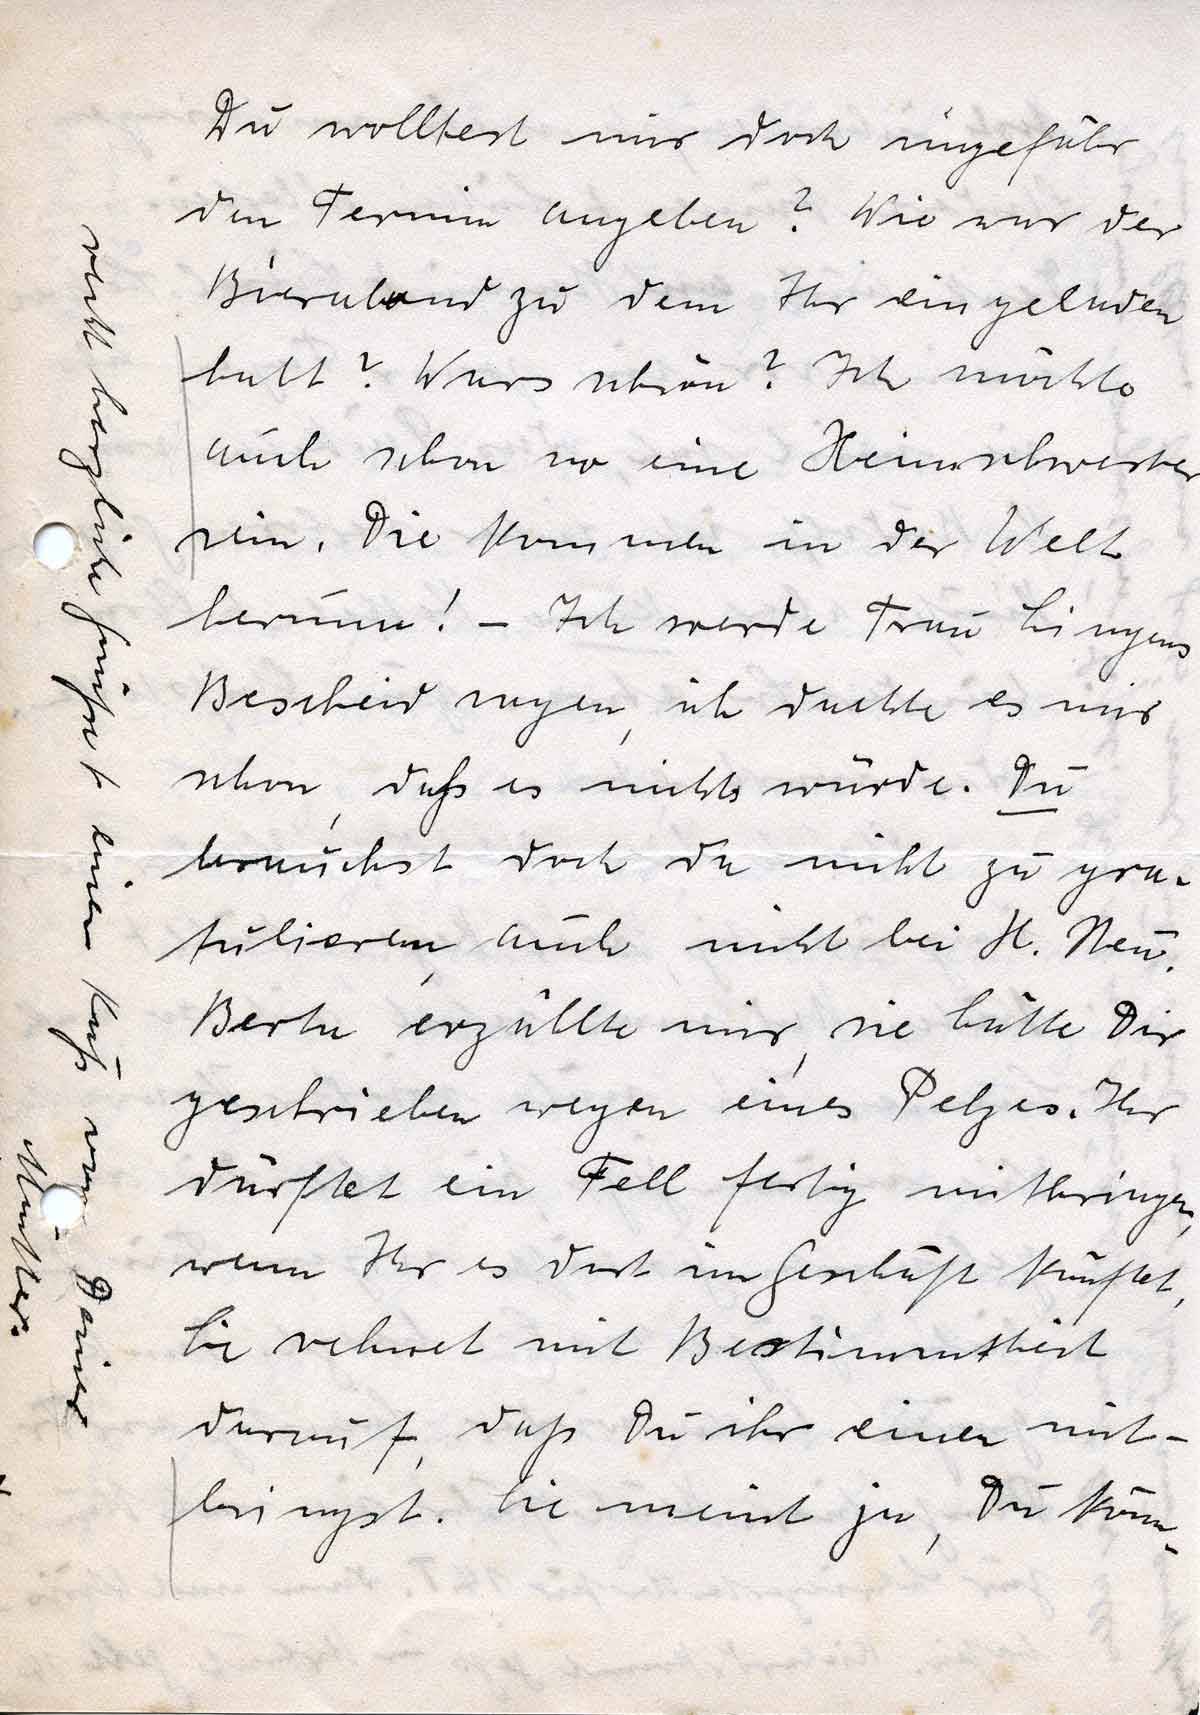 Du wolltest mir doch ungefähr
den Termin angeben? Wie war der
Bierabend zu dem Ihr eingeladen
habt? Wars schön? Ich möchte
auch schon so eine Heimschwester
sein. Die kommen in der Welt
herum! – Ich werde Frau Lingens
Bescheid sagen, ich dachte es mir
schon, daß es nichts würde. Du
brauchst doch da nicht zu gra-
tulieren, auch nicht bei H. Neu.
Berta erzählte mir, sie hätte Dir
geschrieben wegen eines Pelzes. Ihr
dürftet ein Fell fertig mitbringen,
wenn Ihr es dort im Geschäft kauftet,
Sie rechnet mit Bestimmtheit
darauf, daß Du ihr einen mit-
bringst. Sie meint ja, Du könn-
recht herzliche Grüße u. einen Kuß von Deiner
Mutter.